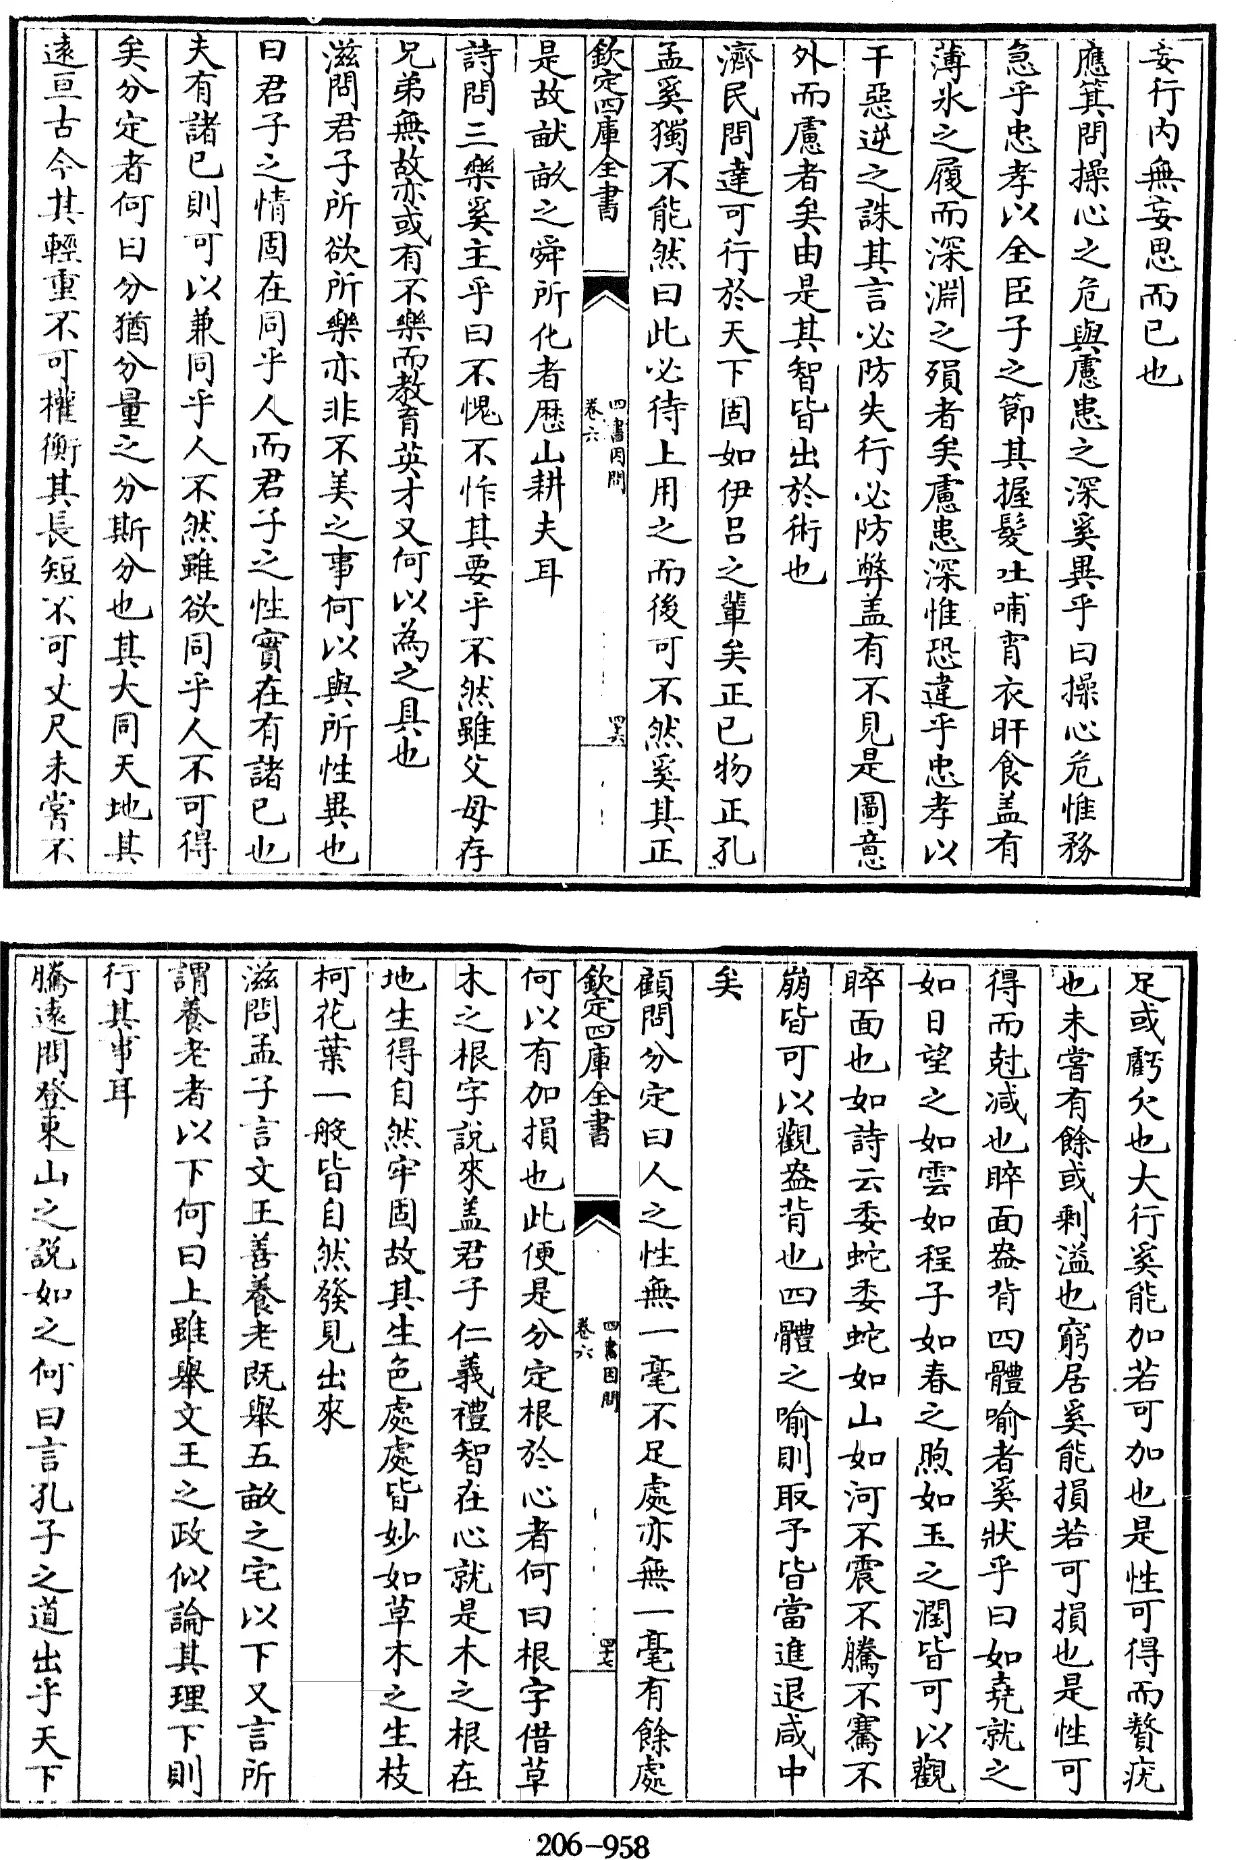 妄行内無妄思而已也
應箕問操心之危與慮患之深奚異乎曰操心危惟務
急乎忠孝以全臣子之節其握髮吐哺宵衣旰食盖有
薄氷之履而深淵之殞者矣慮患深惟恐違乎忠孝以
干惡逆之誅其言必防失行必防弊盖有不見是圖意
外而慮者矣由是其智皆出於術也
濟民問達可行於天下固如伊吕之輩矣正已物正孔
孟奚獨不能然曰此必待上用之而後可不然奚其正
欽定四庫全書
四書因問
卷六
四十六
是故畎畝之舜所化者歴山耕夫耳
詩問三樂奚主乎曰不愧不怍其要乎不然雖父母存
兄弟無故亦或有不樂而教育英才又何以為之具也
滋問君子所欲所樂亦非不美之事何以與所性異也
曰君子之情固在同乎人而君子之性實在有諸已也
夫有諸已則可以兼同乎人不然雖欲同乎人不可得
矣分定者何曰分猶分量之分斯分也其大同天地其
遠亘古今其輕重不可權衡其長短不可丈尺未嘗不
足或虧欠也大行奚能加若可加也是性可得而贅疣
也未嘗有餘或剩溢也窮居奚能損若可損也是性可
得而尅减也睟面盎背四體喻者奚狀乎曰如堯就之
如日望之如雲如程子如春之煦如玉之潤皆可以觀
睟面也如詩云委蛇委蛇如山如河不震不騰不騫不
崩皆可以觀盎背也四體之喻則取予皆當進退咸中
矣
顧問分定曰人之性無一毫不足處亦無一毫有餘處
欽定四庫全書
四書因問
卷六
四十七
何以有加損也此便是分定根於心者何曰根字借草
木之根字説來盖君子仁義禮智在心就是木之根在
地生得自然牢固故其生色處處皆妙如草木之生枝
柯花葉一般皆自然發見出來
滋問孟子言文王善養老既舉五畝之宅以下又言所
謂養老者以下何曰上雖舉文王之政似論其理下則
行其事耳
騰遠問登東山之説如之何曰言孔子之道出乎天下
206-958